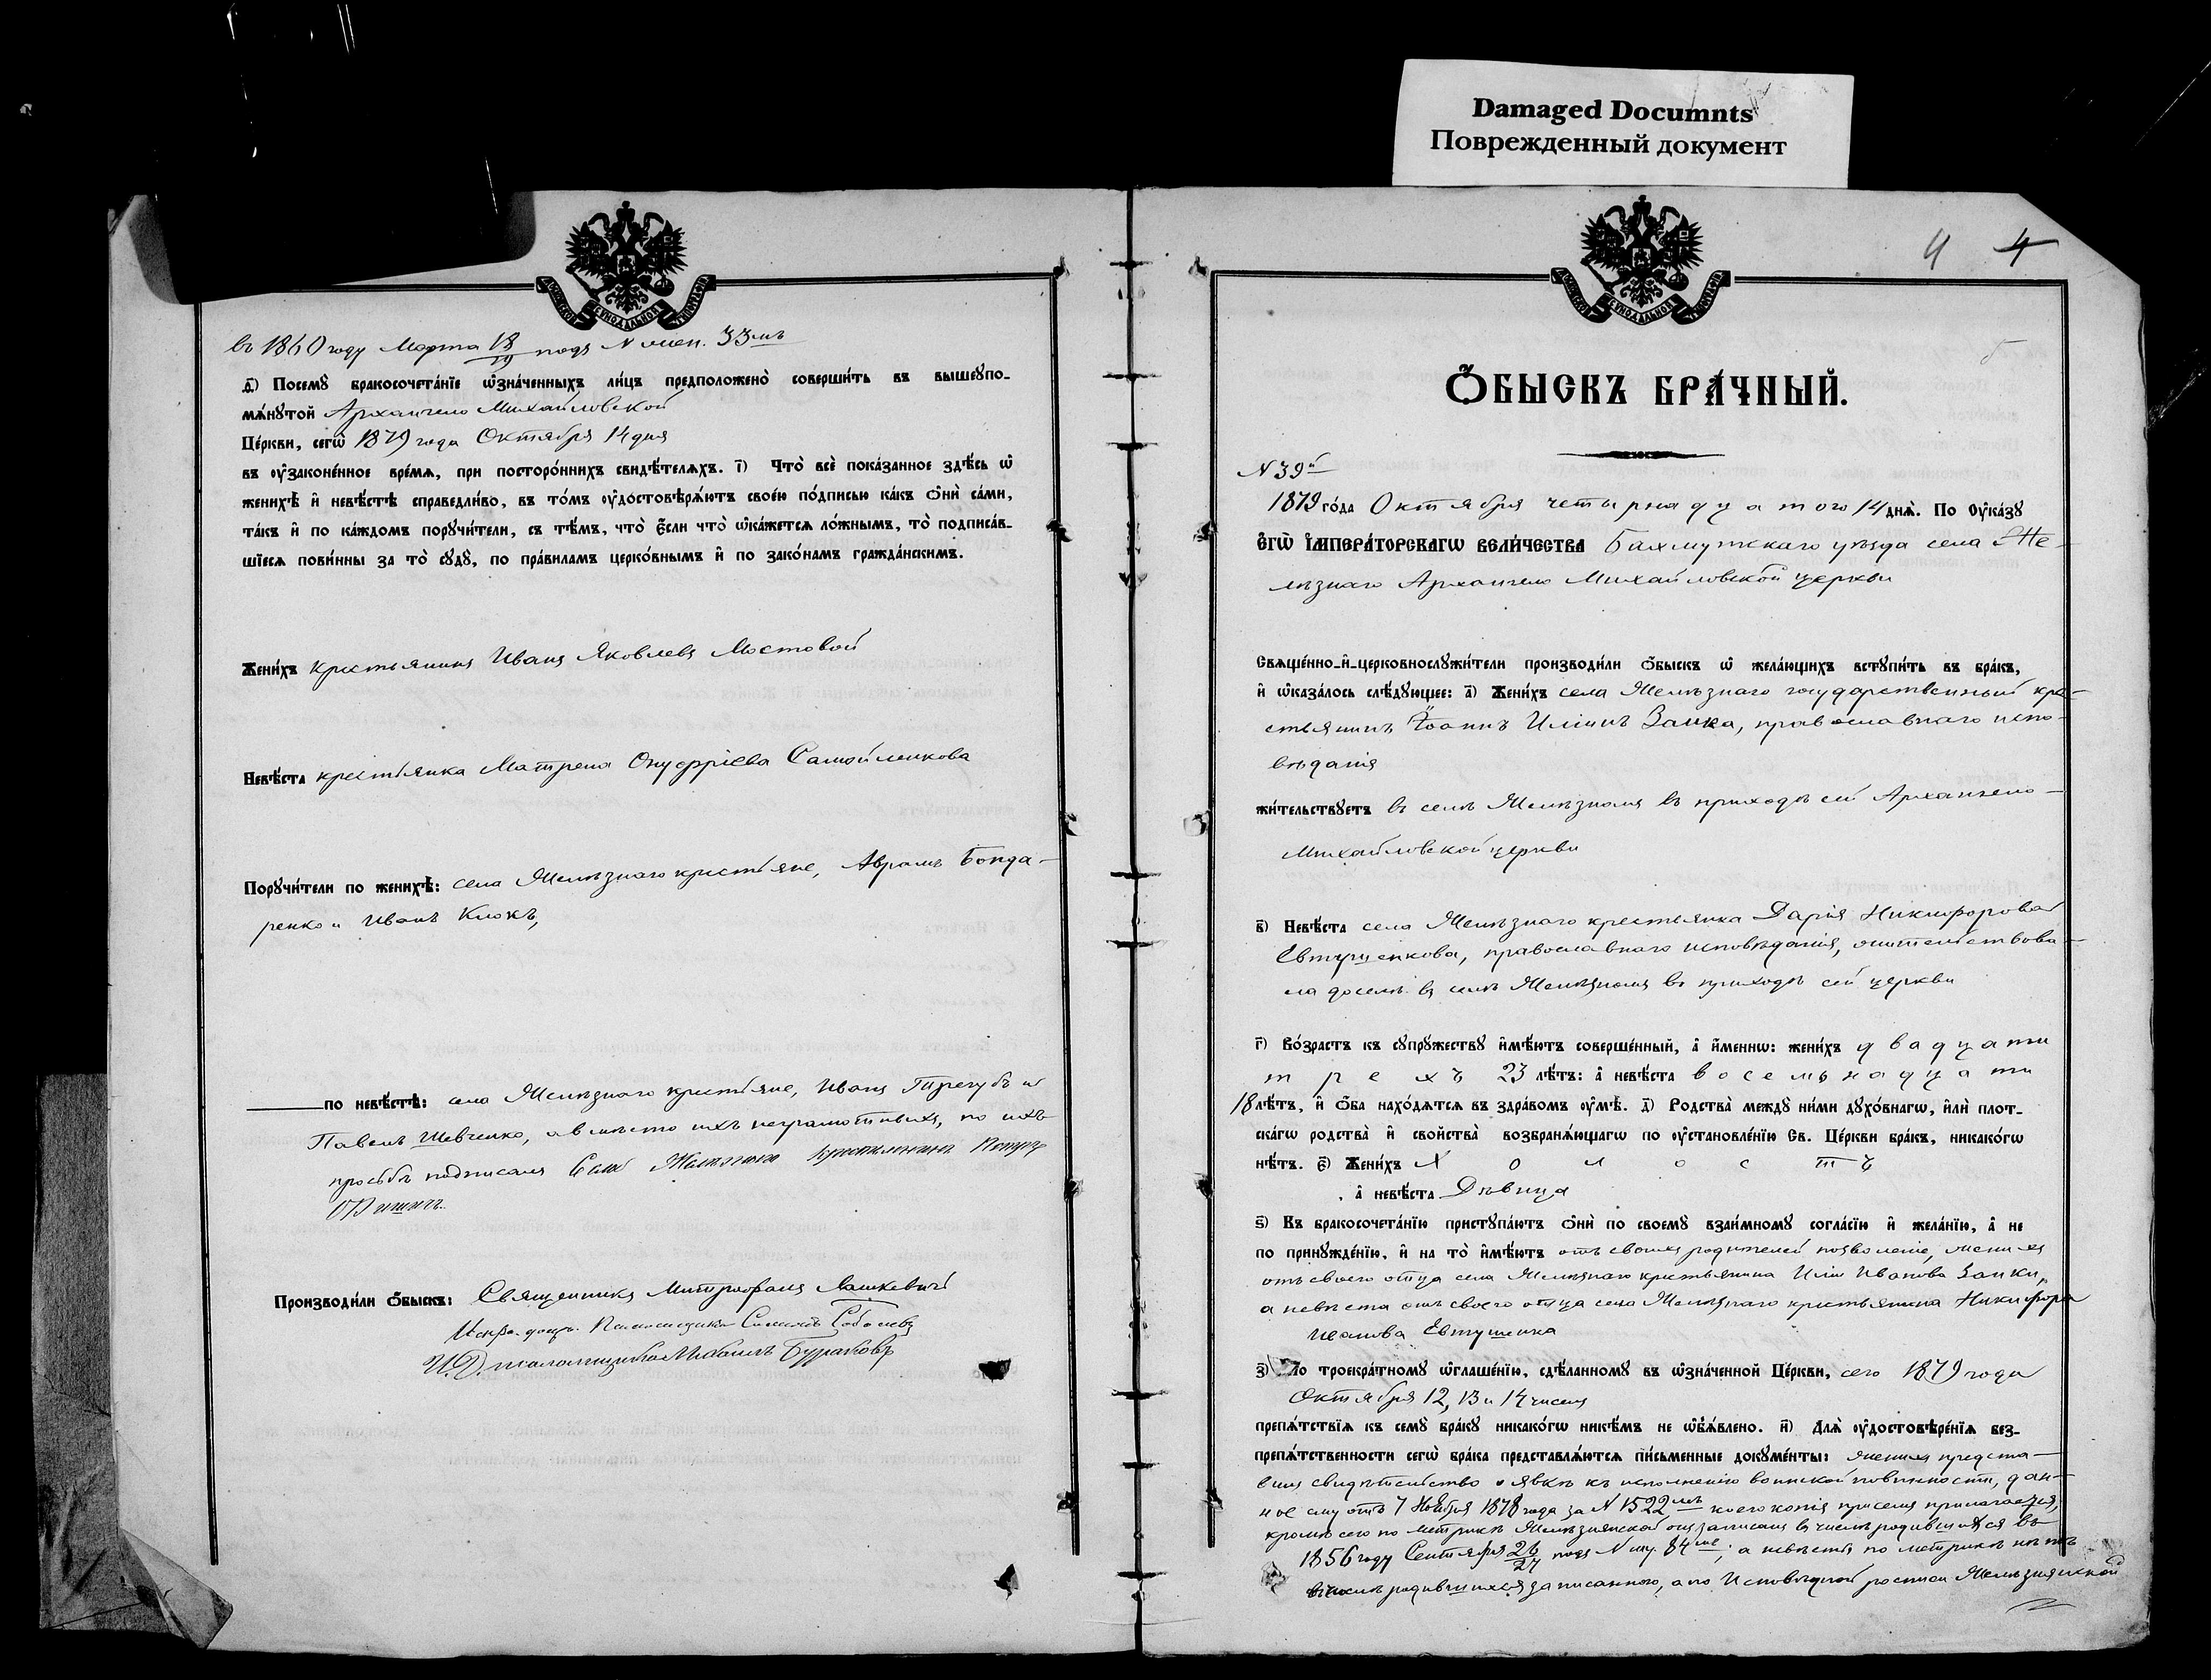 Damaged Documnts
Поврежденный документ
въ 1860 году Марта 18/19 подъ N жен. 33мъ
ѳ҃) Посемꙋ бракосочетанїе ѡзначенныхъ лицъ предположено совершить въ вышеꙋпо-
мянꙋтой Архангело Михайловской
Церкви, сегѡ 1879 года Октября 14 дня
въ ᲂузаконенное время, при постороннихъ свидѣтеляхъ. і҃) Что все показанное здѣсь ѡ
женихѣ и невѣстѣ справедливо, въ томъ ᲂудостовѣряютъ своею подписью какъ ѻни сами,
такъ и по каждомъ порꙋчители, съ тѣмъ, что если что ѡкажется ложнымъ, то подписав-
шїеся повинны за то сꙋдꙋ, по правиламъ церковнымъ и по законамъ гражданскимъ.
Женихъ крестьянинъ Иванъ Яковлевъ Мостовой
Невѣста крестьянка Матрена Онуфріева Самойленкова
Порꙋчители по женихѣ: села Желѣзнаго крестьяне, Аврамъ Бонда-
ренко и Иванъ Клокъ,
по невѣстѣ: села Желѣзнаго крестьяне, Иванъ Трегубъ и
Павелъ Шевченко, а вмѣсто ихъ неграмотныхъ, по ихъ
просьбѣ подписалъ Села Желѣзнаго крестьянинъ
Производили ѻбыскъ: Священникъ Митрофанъ Лашкевичъ
Испр. долж. Псаломщика Симеонъ Соболевъ
И. Д. псаломщика Михаилъ Бураковъ
4 4
Ѻбыскъ брачный.
N 39й
1879 года Октября четырнадцатого 14 дня. По ᲂуказꙋ
Егѡ Императорскагѡ Величества Бахмутскаго уѣзда села Же-
лѣзнаго Архангело Михайловской церкви
Священно-и-церковнослꙋжители производили ѻбыскъ ѡ желающихъ встꙋпить въ бракъ,
и ѡказалось слѣдꙋющее: а҃) Женихъ села Желѣзнаго государственный кре-
стьянинъ Іоаннъ Иліинъ Заика, православнаго испо-
вѣданія
жительствꙋетъ въ селѣ Желѣзномъ въ приходѣ сей Архангело-
Михайловской церкви
в҃) Невѣста села Желѣзнаго крестьянка Дарія Никифорова
Евтушенкова, православнаго исповѣданія, жительствова-
ла доселѣ въ селѣ Желѣзномъ въ приходѣ сей церкви
г҃) Возрастъ къ сꙋпрꙋжествꙋ имѣютъ совершенный, а именнѡ: женихъ двадцати
трехъ 23 лѣтъ: а невѣста восемнадцати
18 лѣтъ, и ѻба находятся въ здравомъ ᲂумѣ. д҃) Родства междꙋ ними дꙋховнагѡ, или плот-
скагѡ родства и свойства возбраняющагѡ по ᲂустановленїю Св. Церкви бракъ, никакогѡ
нѣтъ. е҃) Женихъ Холостъ
, а невѣста Дѣвица
ѕ҃) Къ бракосочетанїю пристꙋпаютъ ѻни по своемꙋ взаимномꙋ согласїю и желанїю, а не
по принꙋжденїю, и на то имѣютъ отъ своихъ родителей позволеніе, женихъ
отъ своего отца села Желѣзнаго крестьянина Иліи Иванова Заики,
а невѣста отъ своего отца села Желѣзнаго крестьянина Никифора
Иванова Евтушенка
з҃) По троекратномꙋ ѡглашенїю, сдѣланномꙋ въ ѡзначенной Церкви, сего 1879 года
Октября 12, 13 и 14 чиселъ
препятствїя къ семꙋ бракꙋ никакогѡ никѣмъ не ѡбъявлено. и҃) Для ᲂудостовѣренїя без-
препятственности сегѡ брака представляются письменные докꙋменты: женихъ предста-
вилъ свидѣтельство о явкѣ къ исполненію воинской повинности, дан-
ное ему отъ 7 Ноября 1878 года за N 1522мъ коего копія при семъ прилагается,
кромѣ сего по метрикѣ Желѣзнянской онъ записанъ въ числѣ родившихся въ
1856 году Сентября 26/27 подъ N му. 84мъ; а невѣсты по метрикѣ нѣтъ
въ числѣ родившихся записанною, а по Исповѣдной росписи Желѣзнянской